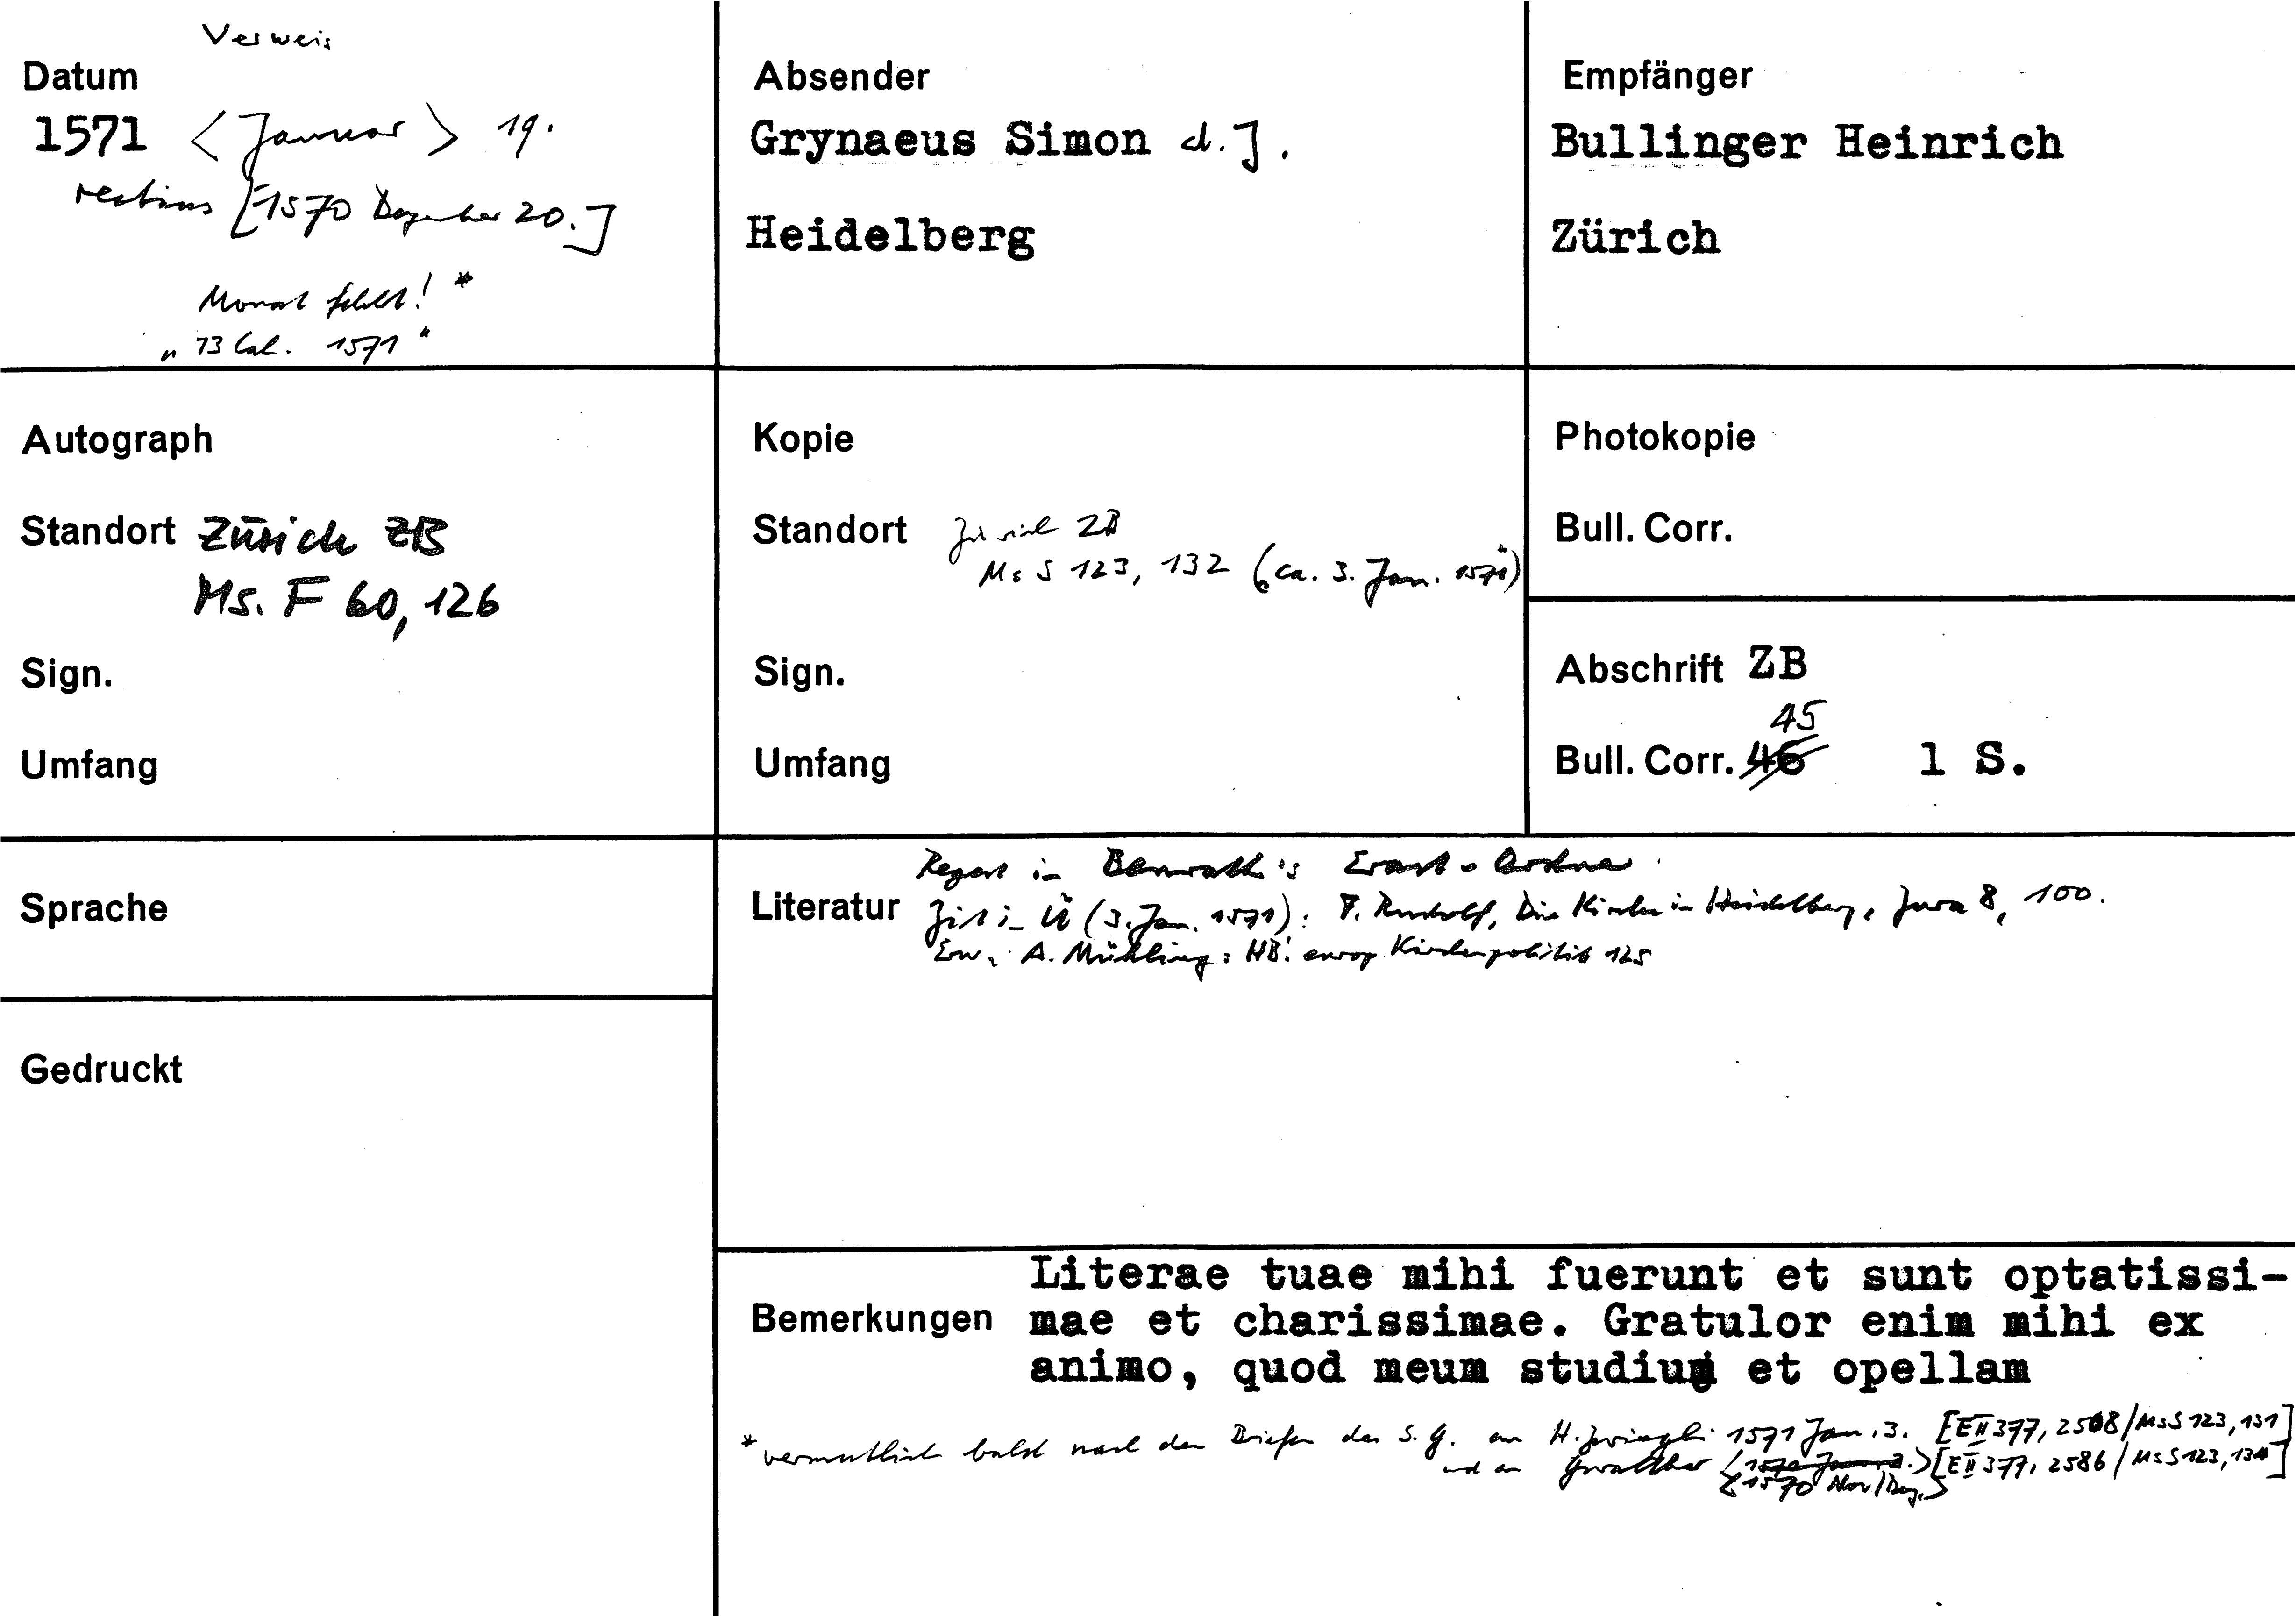 Verweis
Datum
1571 < Januar > 19.
rectius [1570 Dezember 20.]
Monat fehlt! *
"13 Cal. 1571"
Absender
Grynaeus Simon d. J.
Heidelberg
Empfänger
Bullinger Heinrich
Zürich
Autograph
Standort Zürich ZB
Ms. F 60, 126
Sign.
Umfang
Kopie
Standort Zürich ZB
Ms S 123, 132 ("ca. 3. Jan. 1571")
Sign.
Umfang
Photokopie
Bull. Corr.
Abschrift ZB
45
Bull. Corr. 46 1 S.
Sprache
Gedruckt
Regest in Benrath's Erast-
Literatur Zit in Ü (3. Jan. 1571): F. Rudolf, Die Kirche in Heidelberg, Zwa 8, 100.
Erw. A. Mühling: HB' europ Kirchenpolitik 125
Literae tuae mihi fuerunt et sunt optatissi-
Bemerkungen mae et charissimae. Gratulor enim mihi ex
animo, quod meum studium et opellam
* vermutlich bald nach den Briefen des S. G. an H. Zwingli 1571 Jan. 3. [E II 377, 2508 / Ms S 123, 131]
und an Gwalther <1570 Jan. 3.> [E II 377, 2586 / Ms S 123, 134]
<1570 Nov/Dez.>